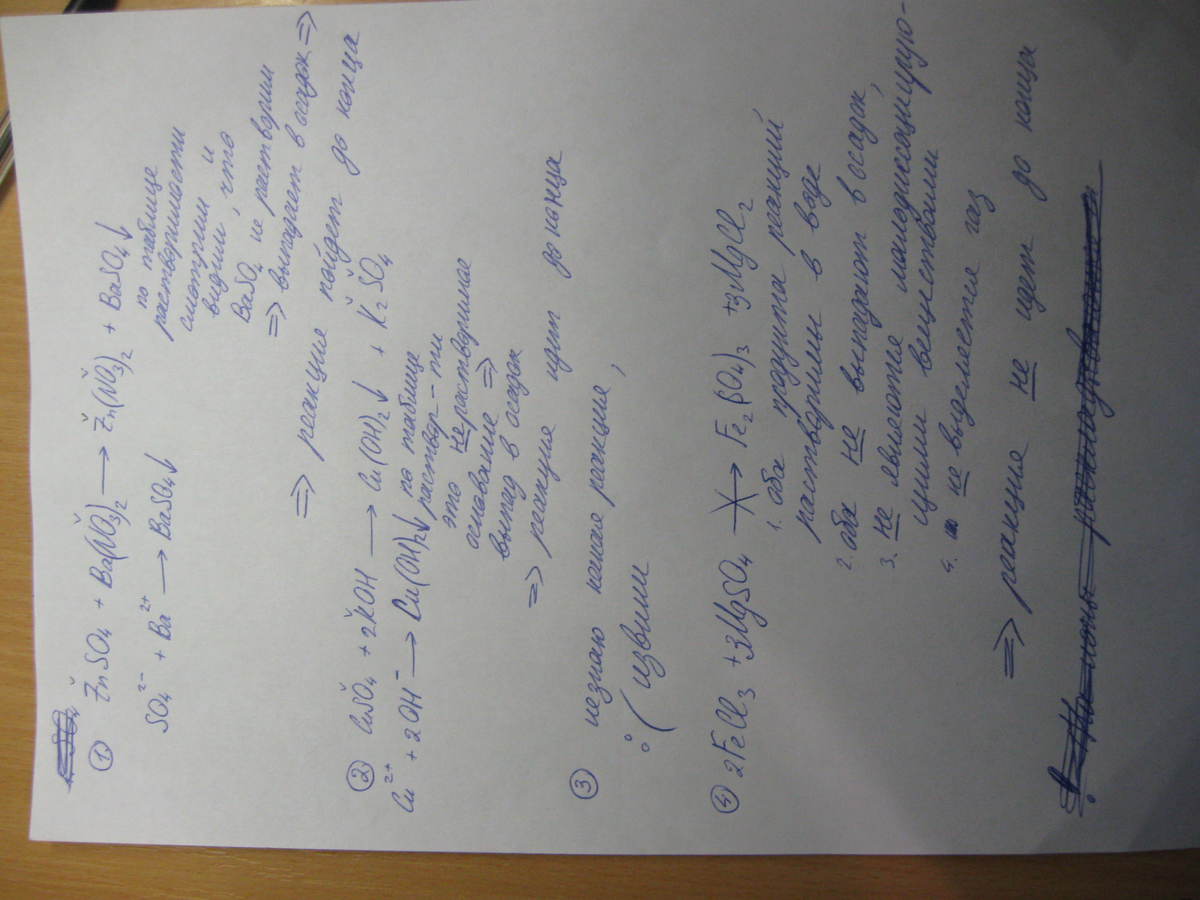 ① ZnSO₄ + Ba(NO₃)₂ ⟶ Zn(NO₃)₂ + BaSO₄↓
SO₄²⁻ + Ba²⁺ ⟶ BaSO₄↓
по таблице
растворимости
смотрим и
видим, что
BaSO₄ не растворим
=> выпадает в осадок =>
=> реакция пойдет до конца
② CuSO₄ + 2KOH ⟶ Cu(OH)₂↓ + K₂SO₄
Cu²⁺ + 2OH⁻ ⟶ Cu(OH)₂↓
по таблице
раствор-ти
это нерастворимое
основание =>
выпад в осадок
=> реакция идет до конца
③ незнаю какая реакция,
:( извини
④ 2FeCl₃ + 3MgSO₄ ⟶ Fe₂(SO₄)₃ + 3MgCl₂
1. оба продукта реакций
растворимы в воде
2. оба не выпадают в осадок,
3. не являются малодиссоциирую-
щими веществами
4. не выделяется газ
=> реакция не идет до конца